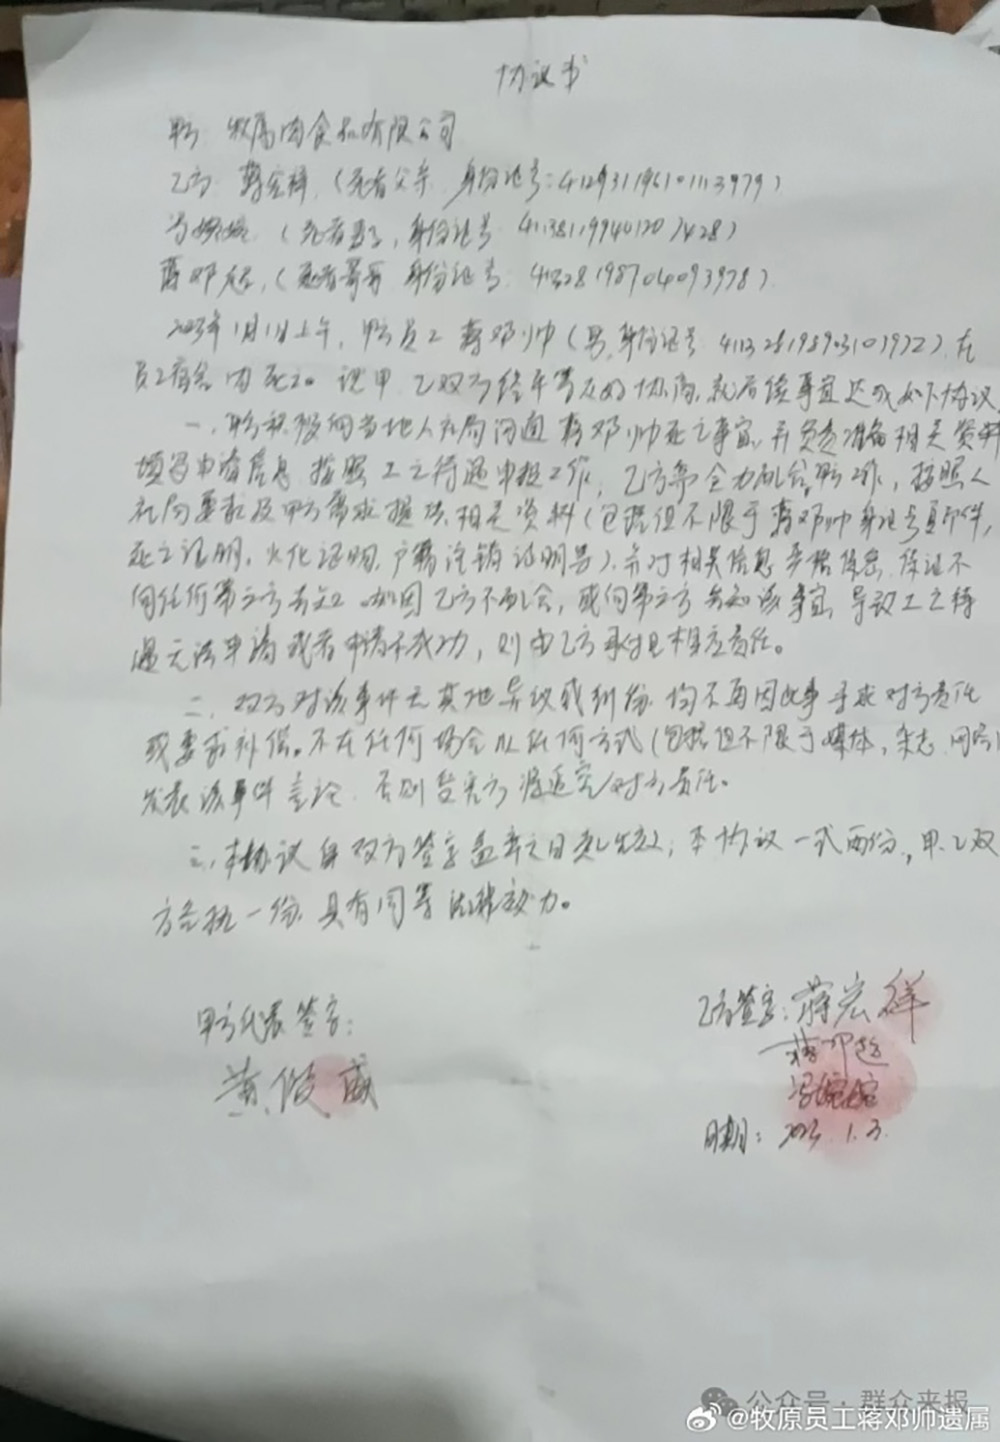 协议书
甲方：牧原肉食品有限公司
乙方：蒋宏祥，（死者父亲，身份证号：
冯婉婉（死者妻子，身份证号：
蒋邓超，（死者哥哥，身份证号：
2023年1月1日上午，甲方员工蒋邓帅（男，身份证号：），在
员工宿舍内死亡。现甲、乙双方经平等友好协商，就后续事宜达成如下协议
一、甲方积极向当地人社局沟通蒋邓帅死亡事宜，并负责准备相关资料
填写申请信息，按照工亡待遇申报工作，乙方需全力配合甲方工作，按照人
社局要求及甲方需求提供相关资料（包括但不限于蒋邓帅身份证复印件，
死亡证明，火化证明，户籍注销证明等），并对相关信息严格保密，保证不
向任何第三方告知。如因乙方不配合，或向第三方告知该事宜，导致工亡待
遇无法申请或者申请不成功，则由乙方承担相应责任。
二、双方对该事件无其他异议或纠纷，均不再因此事寻求对方责任
或要求补偿。不在任何场合以任何方式（包括但不限于媒体，杂志，网络）
发表该事件言论，否则受害方将追究对方责任。
三、本协议自双方签字盖章之日起生效，本协议一式两份，甲、乙双
方各执一份，具有同等法律效力。
甲方代表签字：
乙方签字：蒋宏祥
黄俊
蒋邓超
冯婉婉
日期：2023.1.3.
公众号·群众来报
@牧原员工蒋邓帅遗属